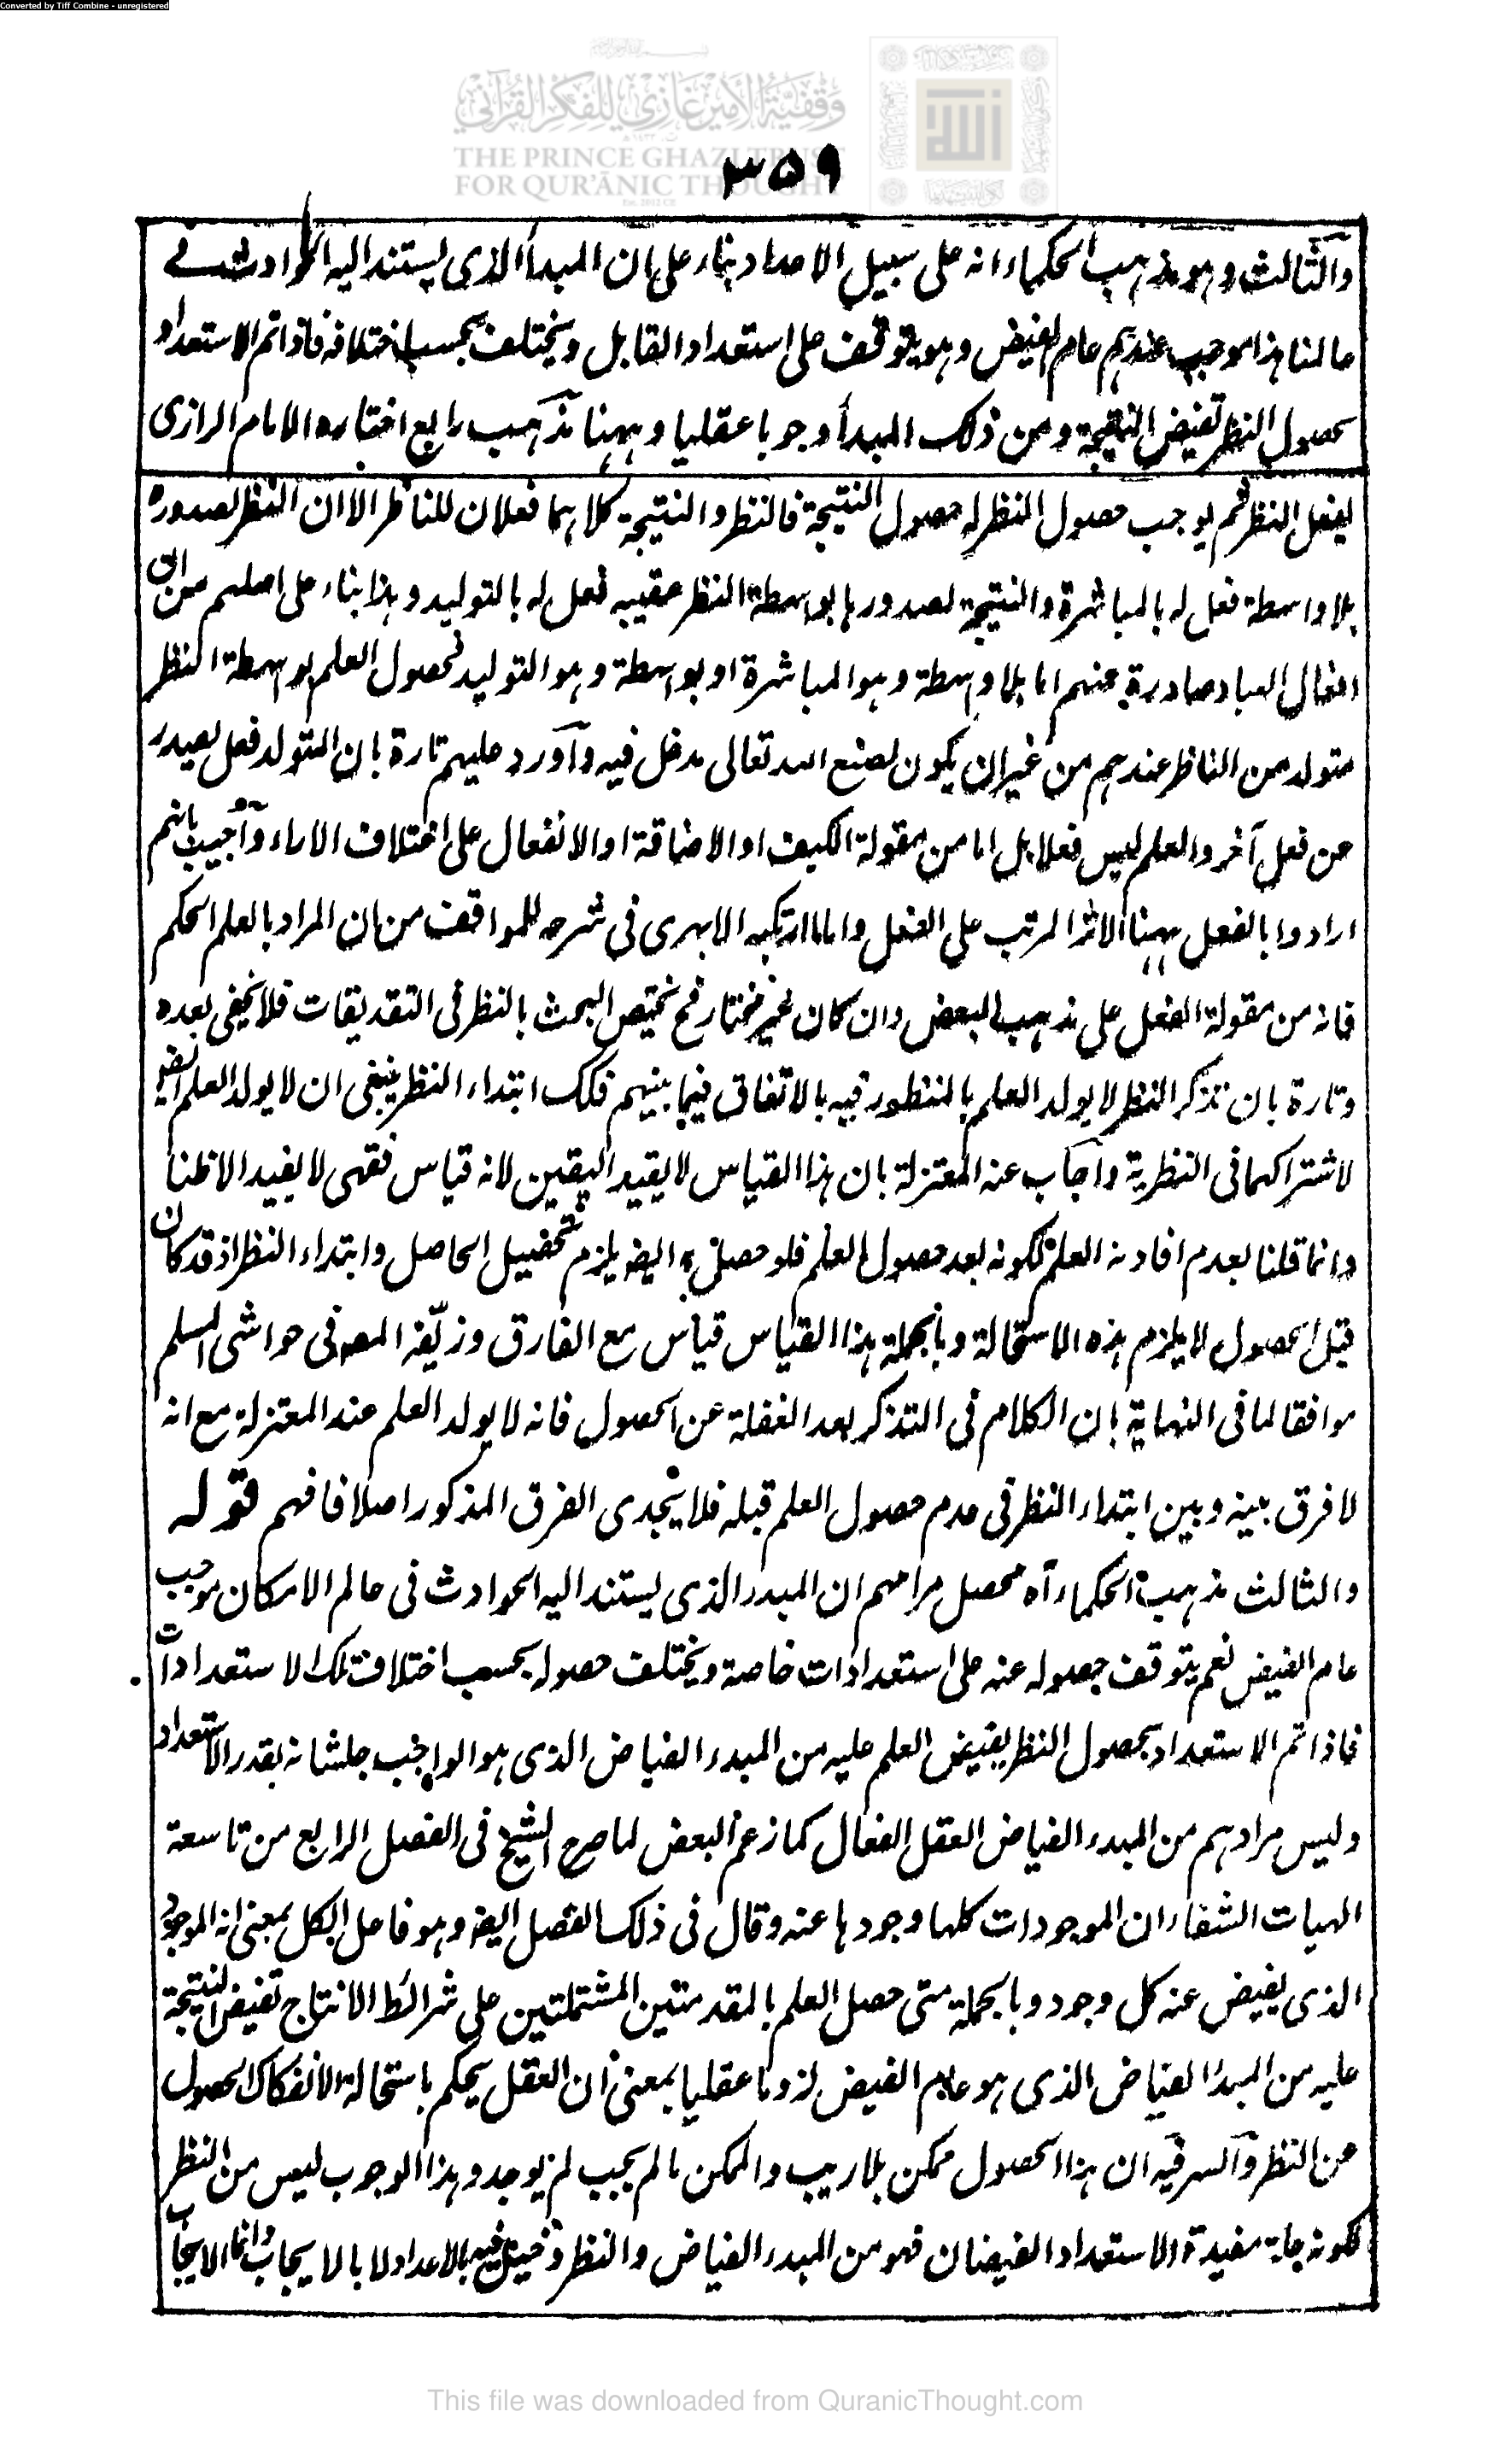 Converted by Tiff Combine - unregistered
وقفية الأمير غازي للفكر القرآني
THE PRINCE GHAZI TRUST
FOR QUR'ĀNIC THOUGHT
٣٥٩
والثالث وهو مذهب الحكماء انه على سبيل الاعداد بناء على ان المبدأ الذى يستند اليه الحوادث فے
عالمنا هذا موجب عندهم عام الفيض وهو يتوقف على استعداد القابل ويختلف بحسب اختلافه فاذا تم الاستعداد
بحصول النظر تفيض النتيجة ومن ذلك المبدأ وجوبا عقليا وههنا مذهب رابع اختاره الامام الرازى
لفعل النظر ثم يوجب حصول النظر له حصول النتيجة فالنظر والنتيجة كلاهما فعلان للناظر الا ان النظر لصدوره
بلا واسطة فعل له بالمباشرة والنتيجة لصدورها بواسطة النظر عقيبه فعل له بالتوليد وهذا بناء على اصلهم من ان
افعال العباد صادرة عنهم اما بلا واسطة وهو المباشرة او بواسطة وهو التوليد فحصول العلم بواسطة النظر
متولد من الناظر عندهم من غير ان يكون لصنع الله تعالى مدخل فيه وآورد عليهم تارة بان التولد فعل يصدر
عن فعل آخر والعلم ليس فعلا بل اما من مقولة الكيف او الاضافة او الانفعال على اختلاف الاراء وآجيب بانهم
ارادوا بالفعل ههنا الاثر المرتب على الفعل واما ما ارتكبه الابهرى فى شرحه للمواقف من ان المراد بالعلم الحكم
فانه من مقولة الفعل على مذهب البعض وان كان غير مختار فح يختص البحث بالنظر فى التصديقات فلا يخفى بعده
وتارة بان تذكر النظر لا يولد العلم بالمنظور فيه بالاتفاق فيما بينهم فكك ابتداء النظر ينبغى ان لا يولد العلم ايضا
لاشتراكهما فى النظرية وآجاب عنه المعتزلة بان هذا القياس لا يفيد اليقين لانه قياس فقهى لا يفيد الا ظنا
وانما قلنا بعدم افادته العلم لكونه بعد حصول العلم فلو حصل به ايضا يلزم تحصيل الحاصل وابتداء النظر اذ قد كان
قبل الحصول لا يلزم هذه الاستحالة وبالجملة هذا القياس قياس مع الفارق وزيّفه المص فى حواشى المسلم
موافقا لما فى النهاية بان الكلام فى التذكر بعد الغفلة عن الحصول فانه لا يولد العلم عند المعتزلة مع انه
لا فرق بينه وبين ابتداء النظر فى عدم حصول العلم قبله فلا يجدى الفرق المذكور اصلا فافهم قوله
والثالث مذهب الحكماء آه محصل مرامهم ان المبدء الذى يستند اليه الحوادث فى عالم الامكان موجب
عام الفيض نعم يتوقف حصوله عنه على استعدادات خاصة ويختلف حصوله بحسب اختلاف تلك الاستعدادات
فاذا تم الاستعداد بحصول النظر يفيض العلم عليه من المبدء الفياض الذى هو الواجب جلشانه بقدر الاستعداد
وليس مرادهم من المبدء الفياض العقل الفعال كما زعم البعض لما صرح الشيخ فى الفصل الرابع من تاسعة
الهيات الشفاء ان الموجودات كلها وجودها عنه وقال فى ذلك الفصل ايضا وهو فاعل الكل بمعنى انه الموجود
الذى يفيض عنه كل وجود وبالجملة متى حصل العلم بالمقدمتين المشتملتين على شرائط الانتاج تفيض النتيجة
عليه من المبدأ الفياض الذى هو عام الفيض لزوما عقليا بمعنى ان العقل يحكم باستحالة الانفكاك الحصول
عن النظر وآلسر فيه ان هذا الحصول ممكن بلا ريب والممكن ما لم يجب لم يوجد وهذا الوجوب ليس من النظر
لكونه مفيدة الاستعداد الفيضان فهو من المبدء الفياض والنظر دخيل فيه بالاعداد لا بالايجاب وانما الايجاب
This file was downloaded from QuranicThought.com